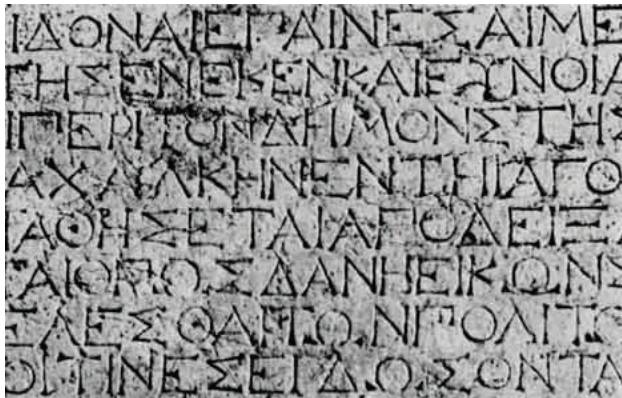 ΙΔΟΝΑΙΕΠΑΙΝΕΣΑΙΜΕ
ΤΗΣΕΝΕΚΕΝΚΑΙΕΥΝΟΙΑ
ΙΠΕΡΙΤΟΝΔΗΜΟΝΣΤΗΣ
ΑΧΑΛΚΗΝΕΝΤΗΙΑΓΟ
ΤΑΘΗΣΕΤΑΙΑΠΟΔΕΙΞΑ
ΣΑΙΟΠΩΣΔΑΝΗΕΙΚΩΝΣ
ΕΛΕΣΘΑΙΤΩΝΠΟΛΙΤΩ
ΟΙΤΙΝΕΣΕΓΔΩΣΟΝΤΑ